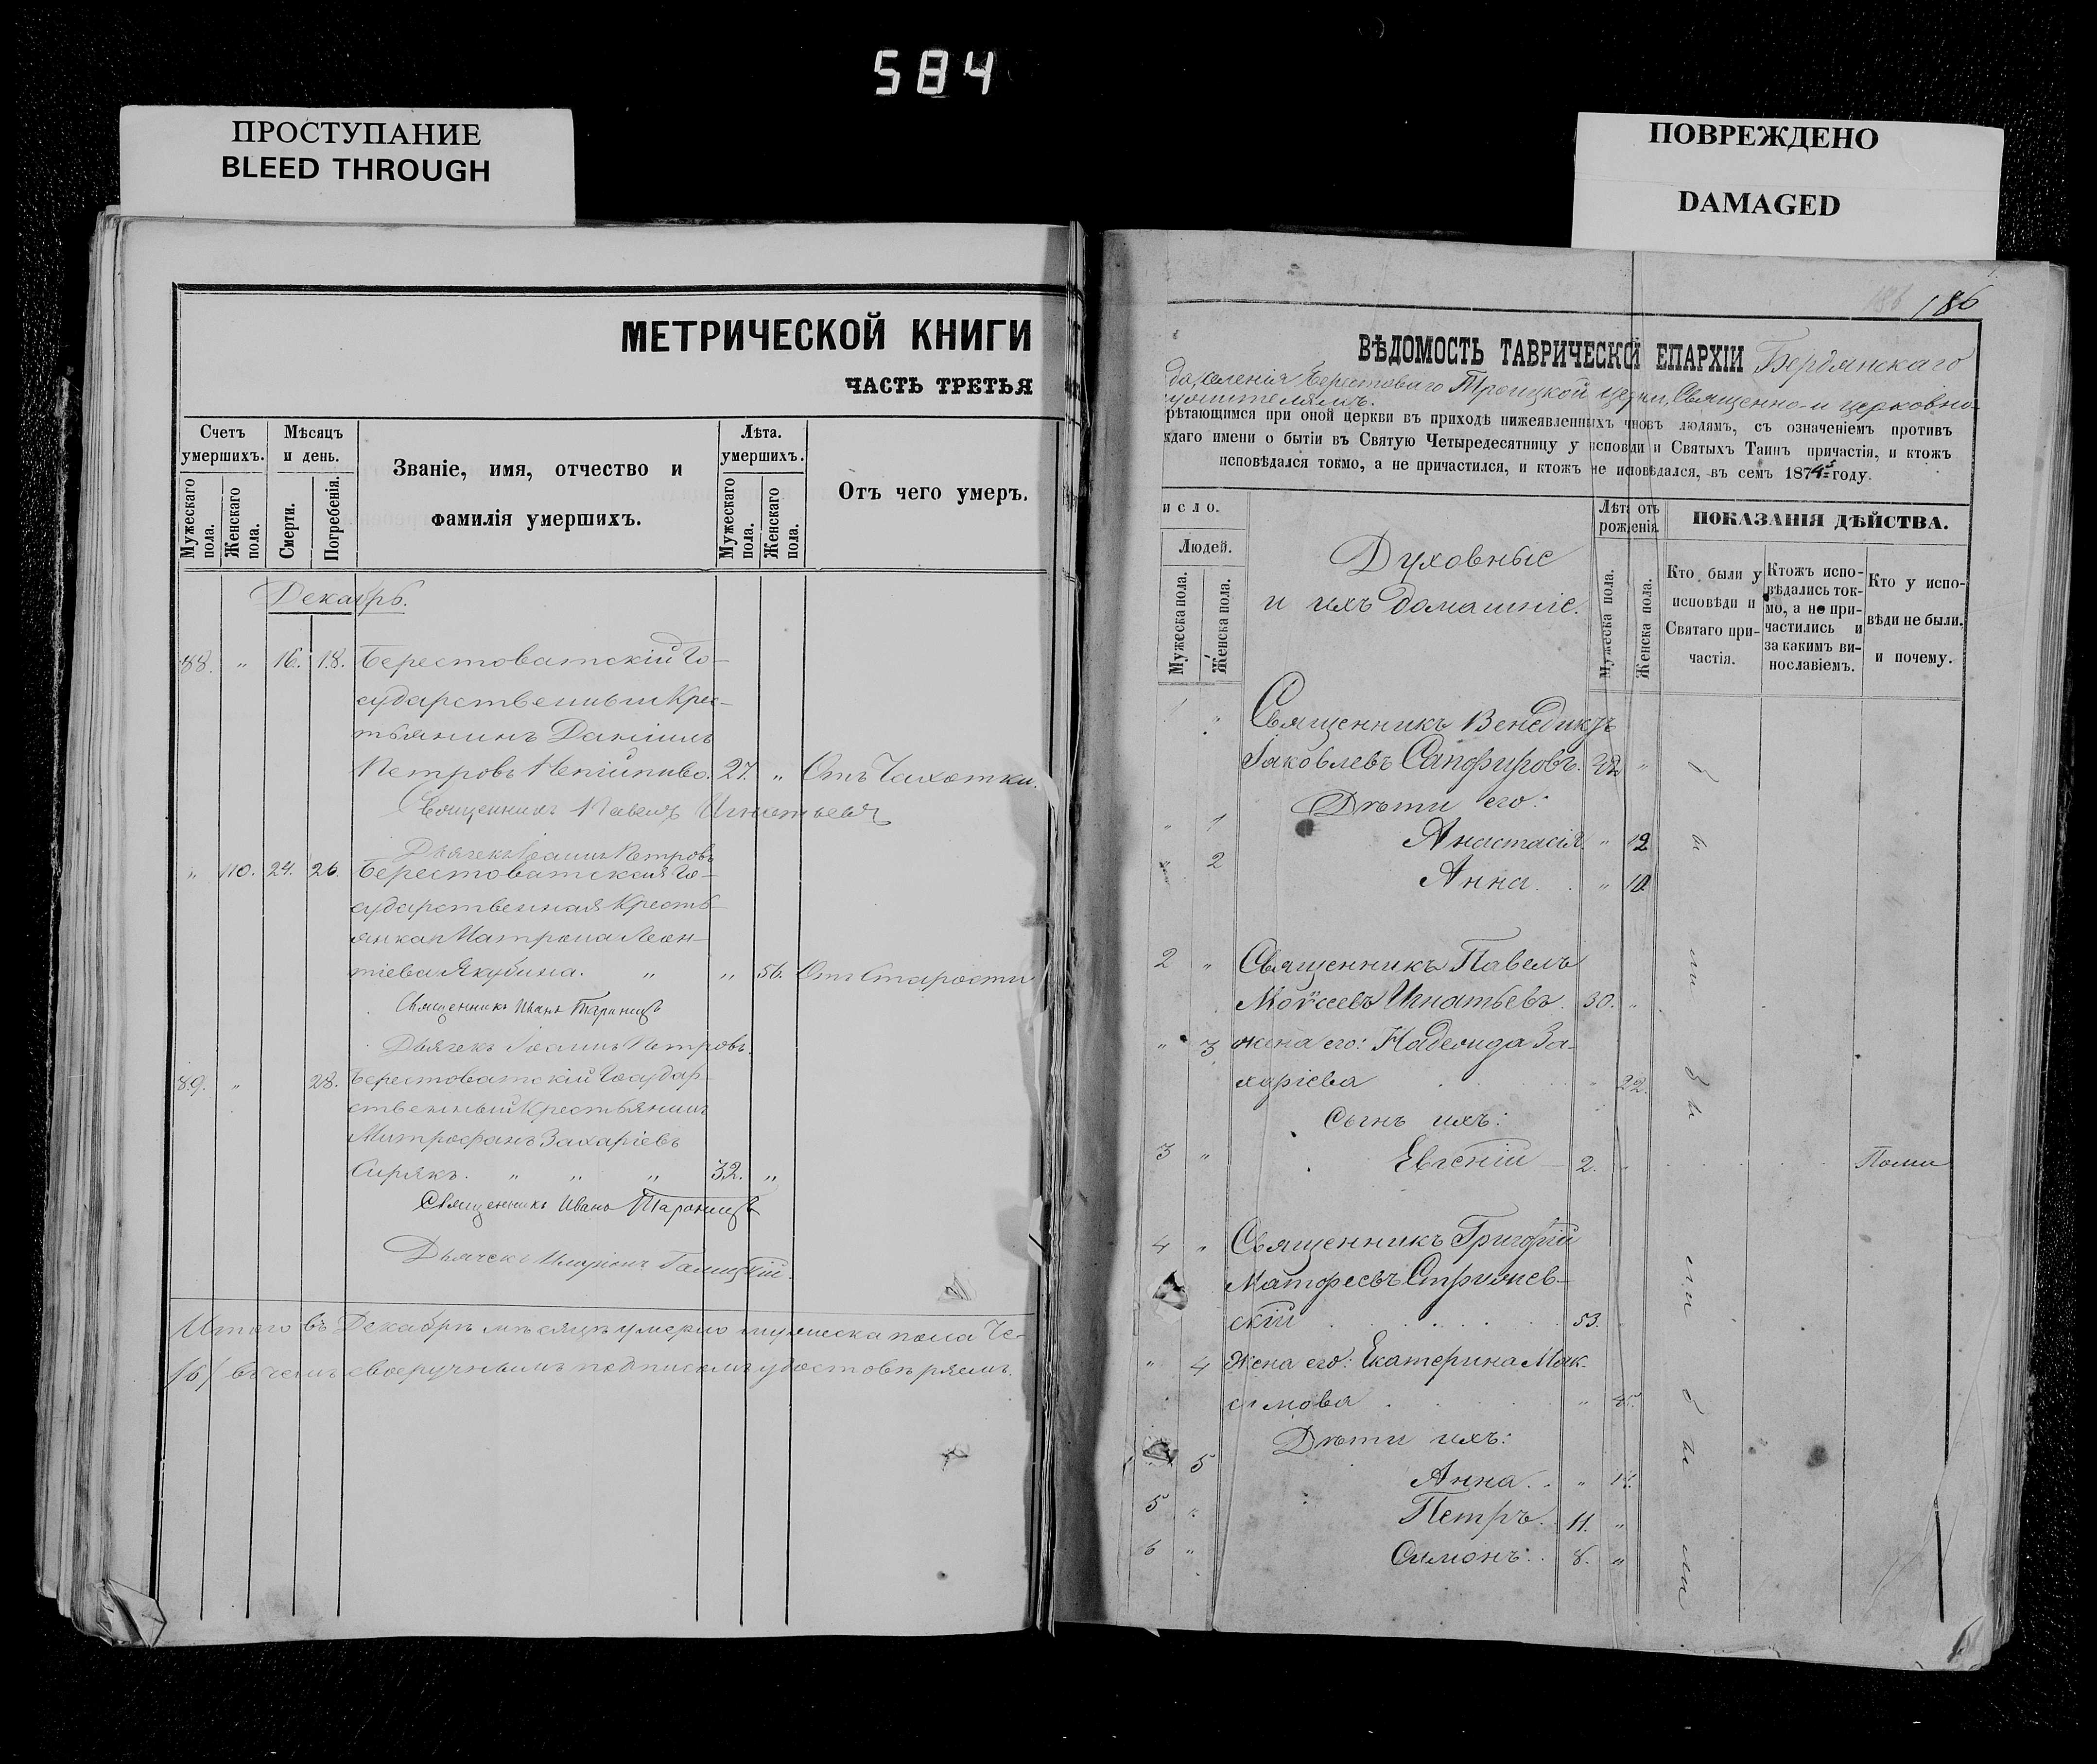 584
ПРОСТУПАНИЕ
BLEED THROUGH
ПОВРЕЖДЕНО
DAMAGED
МЕТРИЧЕСКОЙ КНИГИ
ЧАСТЬ ТРЕТЬЯ
Счетъ умершихъ.
Мѣсяцъ и день.
Званіе, имя, отчество и
фамилія умершихъ.
Лѣта. умершихъ.
Отъ чего умеръ.
Мужескаго пола.
Женскаго пола.
Смерти.
Погребенія.
Мужескаго пола.
Женскаго пола.
Декабрь.
88. „ 16. 18. Берестоватскій Го-
сударственный Крес-
тьянинъ Даніилъ
Петровъ 27. „ Отъ Чахотки.
Священникъ Павелъ Игнатьевъ
Дьячекъ Іоаннъ Петровъ
„ 110. 24. 26. Берестоватская Го-
сударственная Кресть-
янка Матрона Леон-
тіева Якубина. „ „ 56. Отъ Старости
Священникъ Иванъ
Дьячекъ Іоаннъ Петровъ.
89. „ 28. Берестоватскій Государ-
ственный Крестьянинъ
Митрофанъ Захаріевъ
Сирякъ. „ „ „ 32. „
Священникъ Иванъ
Дьячекъ Галицкій.
Итого въ Декабрѣ мѣсяцѣ умерло мужеска пола Че-
/6/ въ чемъ своеручнымъ подписомъ удостовѣряемъ.
186
ВѢДОМОСТЬ ТАВРИЧЕСКОЙ ЕПАРХІИ Бердянскаго
селенія Берестоваго Троицкой церкви, Священно- и церковно-
служителямъ.
рѣтающимся при оной церкви въ приходѣ нижеявленныхъ чиновъ людямъ, съ означеніемъ противъ
ждаго имени о бытіи въ Святую Четыредесятницу у исповѣди и Святыхъ Таинъ причастія, и ктожъ
исповѣдался токмо, а не причастился, и ктожъ не исповѣдался, въ семъ 1874 году.
исло.
Людей.
Мужеска пола.
Женска пола.
Духовные
и ихъ домашніе.
Лѣта отъ рожденія.
Мужеска пола.
Женска пола.
ПОКАЗАНІЯ ДѢЙСТВА.
Кто были у исповѣди и Святаго причастія.
Ктожъ исповѣдались токмо, а не причастились и за какимъ винославіемъ.
Кто у исповѣди не были. и почему.
1 „ Священникъ Венедиктъ
Іаковлевъ Сапфировъ. „
Дѣти его:
„ 1 Анастасія „ 12
„ 2 Анна. „ 10
2 „ Священникъ Павелъ
Моѵсеевъ Игнатьевъ. 30. „
„ 3 жена его: Надежда За-
харіева 22.
Сынъ ихъ:
3 „ Евгеній 2. „
4 „ Священникъ Григорій
Матфеевъ Стрижев-
скій 53.
„ 4 Жена его: Екатерина Мак-
симова „ 45.
Дѣти ихъ:
5 Анна. „ 14.
5 „ Петръ. 11. „
6 „ Симонъ. 8. „